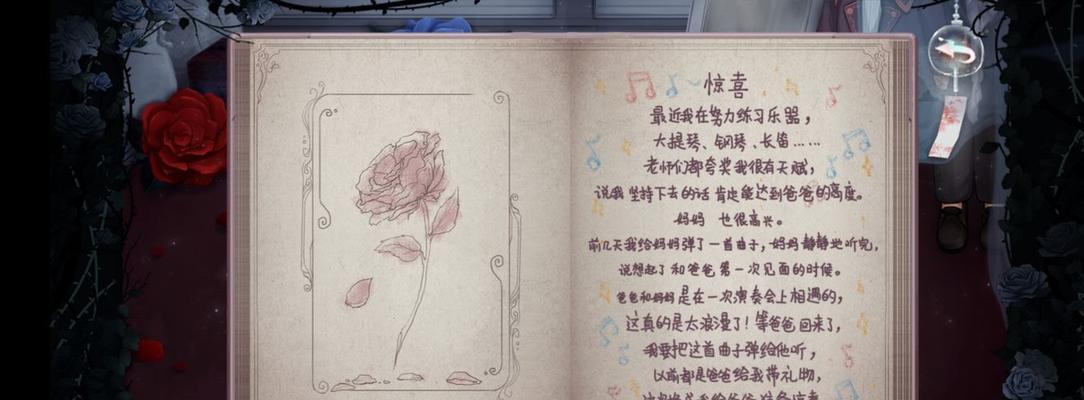 惊喜
最近我在努力练习乐器，
大提琴、钢琴、长笛……
老师们都夸奖我很有天赋，
说我坚持下去的话肯定能达到爸爸的高度。
妈妈 也很高兴。
前几天我给妈妈弹了一首曲子，妈妈静静地听完，
说想起了和爸爸第一次见面的时候。
爸爸和妈妈是在一次演奏会上相遇的，
这真的是太浪漫了！等爸爸回来了，
我要把这首曲子弹给他听，
以前都是爸爸给我带礼物，